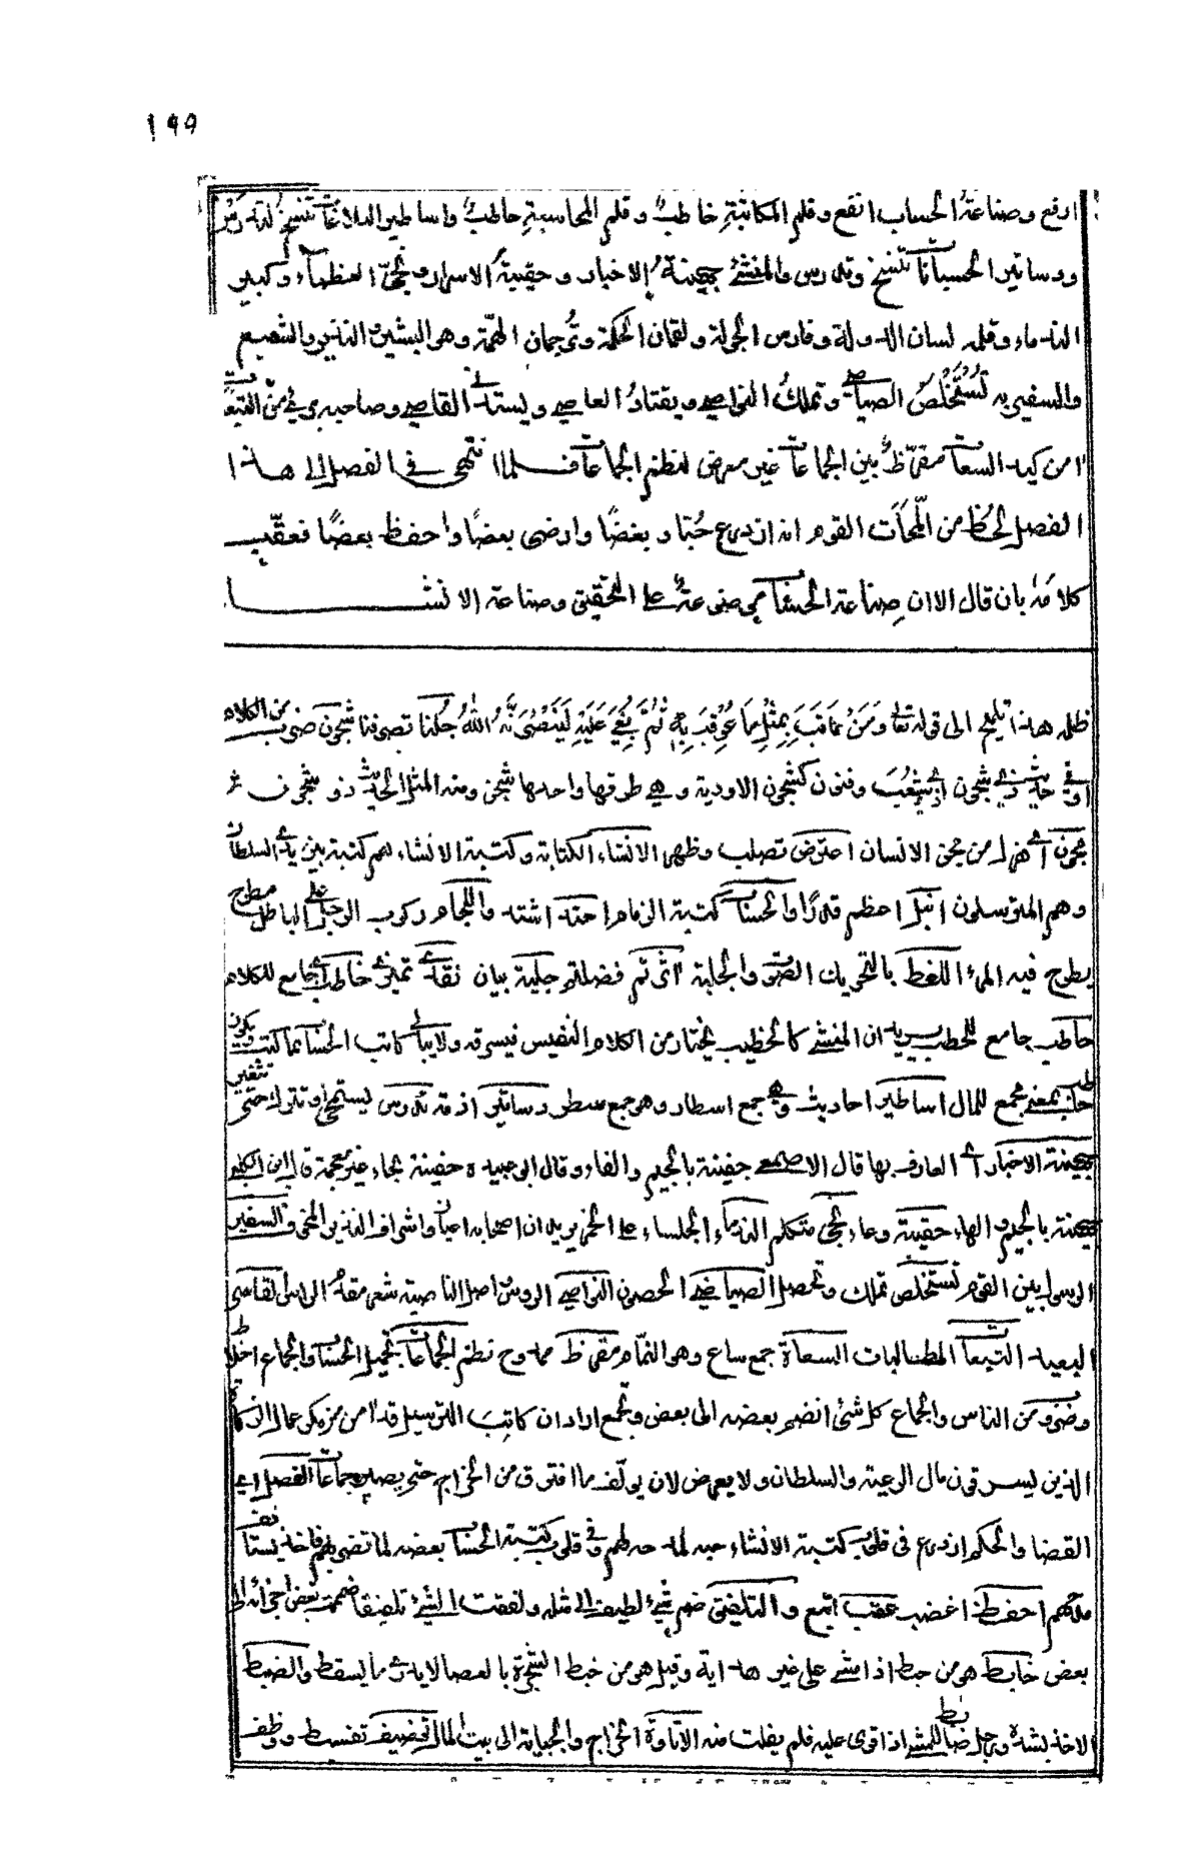 ١٩٩
ارفع وصناعةُ الحساب انفع وقلم المكاتبةِ خاطبٌ وقلم المحاسبةِ حاطبٌ واساطير البلاغات تنسخ لتدرس
ودساتير الحسبانات تنسخ وتدرس والمنشئ جهينةُ الاخبار وحقيبةُ الاسرار ونجىّ العظماء وكبير
الندماء وقلمه لسان الدولة وفارس الجولة ولقمان الحكمة وتُرجمان الهمّة وهو البشير والنذير والشفيع
والسفير به تُستخلص الصياصى وتملكُ النواصى ويقتادُ العاصى ويستدنى القاصى وصاحبه برئ من التبعات
امن كيد السعاة مقرّظٌ بين الجماعات غير معرض لنظم الجماعات فلما انتهى فى الفصل الى هذا
الفصل لحظ من لمحات القوم انه ازدرع حُبّا وبغضًا وارضى بعضًا واحفظ بعضًا فعقّب
كلامهُ بان قال الا ان صِناعة الحساب موضوعةٌ على التحقيق وصناعة الانشاء
ظله هذا تلميح الى قوله تعالى وَمَنْ عَاقَبَ بِمِثْلِ مَا عُوقِبَ بِهِ ثُمَّ بُغِيَ عَلَيْهِ لَيَنْصُرَنَّهُ اللهُ جُلنا تصرفنا شجون ضروب من الكلام
وفى حديث ذى شجون اى شعب وفنون كشجون الاودية وهى طرقها واحدها شجن ومنه المثل الحديث ذو شجون
مجون اى هزل من مجن الانسان اعترض تصلب وظهر الانشاء الكتابة وكتبة الانشاء هم كتبة بين يدى السلطان
وهم المترسلون انبل اعظم قدرًا والحساب كتبة الزمام احتد اشتد واللجاج ركوب الرجل على الباطل مطرح
يطرح فيه المراء اللغط بالتحريك الصوت والجلبة اثرتم فضلتم جلية بيان نقدى تميزى خاطب جامع للكلام
حاطب جامع للحطب يريد ان المنشئ كالخطيب يختار من الكلام النفيس فيسرقه ولا يبالى كاتب الحساب ما كتب ويكون
حاطب بمعنى مجمع للمال اساطير احاديث وهى جمع اسطار وهو جمع سطر دساتير اذمة تدرس ليستمحى وتترك حتى تتغير
جهينة الاخبار اى العارف بها قال الاصمعى جفينة بالجيم والفاء وقال ابو عبيدة حفينة بحاء غير معجمة قال ابن الكلبى
جهينة بالجيم والهاء حقيبة وعاء نجى متكلم الندماء الجلساء على الخمر يريد ان اصحابه اعيان واشراف النذير المخوف والسفير
الرسول بين القوم تستخلص تملك وتحصل الصياصى الحصون النواصى الروس اصل الناصية شعر مقدم الراس القاصى
البعيد التبعات المطالبات السعاة جمع ساع وهو النمّام مقرظ ممدوح نظم الجماعات تجميل الحساب والجماع اخلاط
وضروب من الناس والجماع كل شئ انضم بعضه الى بعض وتجمع اراد ان كاتب الترسيل قد امن من مكر عمال الزكاة
الذين يسرقون مال الرعية والسلطان ولا يعرض لان يولّف ما افترق من الخراج حتى يصير جماعات الفصل اى
القضا والحكم ازدرع فى قلوب كتبة الانشاء حبه لما مدحهم وفى قلوب كتبة الحساب بعضه لما تضى بهم فاخذ يستأنف
مدحهم احفظ اغضب عقب اتبع والتلفيق ضم شئ لطيف الى مثله ولفقت الشئ تلفيقا ضممت بعض اجزائه الى
بعض خابط هو من خبط اذا مشى على غير هداية وقيل هو من خبط الشجرة بالعصا لا يدرى ما يسقط والضبط
الاخذ بشدة ورجل ضابط للشئ اذا قوى عليه فلم يفلت منه الاتاوة الخراج والجباية الى بيت المال توظيف تقسيط ووظف